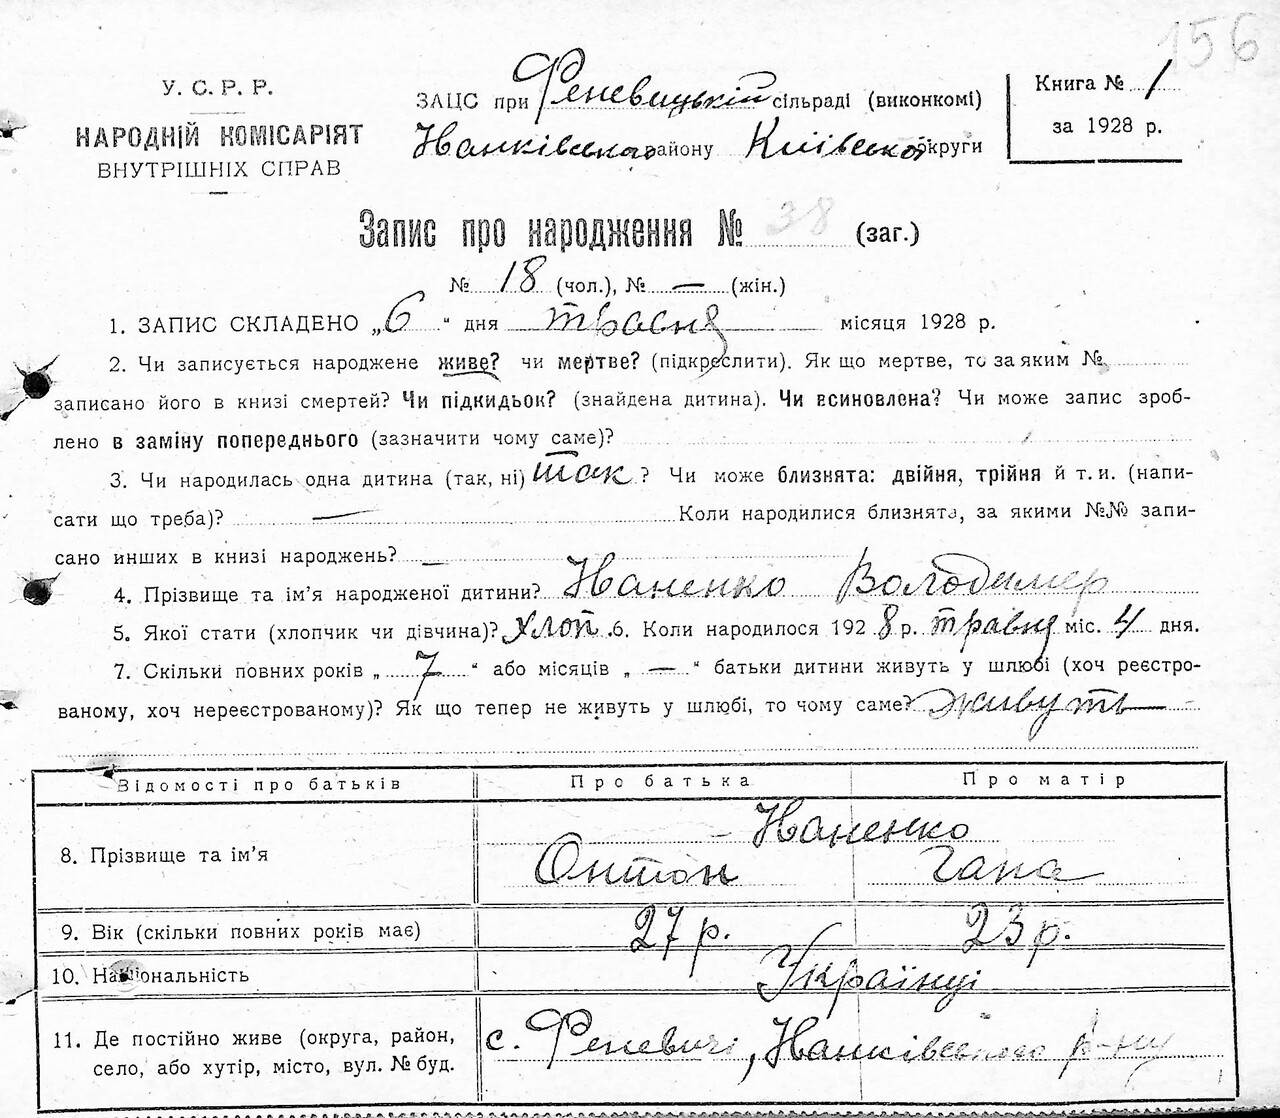 156
У. С. Р. Р.
НАРОДНІЙ КОМІСАРІЯТ
ВНУТРІШНІХ СПРАВ
ЗАЦС при Феневицькій сільраді (виконкомі)
Іванківського району Київської округи
Книга № 1
за 1928 р.
Запис про народження № 38 (заг.)
№ 18 (чол.), № — (жін.)
1. ЗАПИС СКЛАДЕНО „6“ дня травня місяця 1928 р.
2. Чи записується народжене живе? чи мертве? (підкреслити). Як що мертве, то за яким №
записано його в книзі смертей? Чи підкидьок? (знайдена дитина). Чи всиновлена? Чи може запис зроб-
лено в заміну попереднього (зазначити чому саме)?
3. Чи народилась одна дитина (так, ні) так ? Чи може близнята: двійня, трійня й т. и. (напи-
сати що треба)? — Коли народилися близнята, за якими №№ запи-
сано инших в книзі народжень? —
4. Прізвище та ім’я народженої дитини? Іваненко Володимер
5. Якої стати (хлопчик чи дівчина)? хлоп. 6. Коли народилося 1928 р. травня міс. 4 дня.
7. Скільки повних років „7“ або місяців „—“ батьки дитини живуть у шлюбі (хоч реєстро-
ваному, хоч нереєстрованому)? Як що тепер не живуть у шлюбі, то чому саме? живуть
Відомості про батьків Про батька Про матір
8. Прізвище та ім’я Іваненко
Онтон Гана
9. Вік (скільки повних років має) 27 р. 23 р.
10. Національність Українці
11. Де постійно живе (округа, район,
село, або хутір, місто, вул. № буд. с. Феневичі, Іванківського р-ну